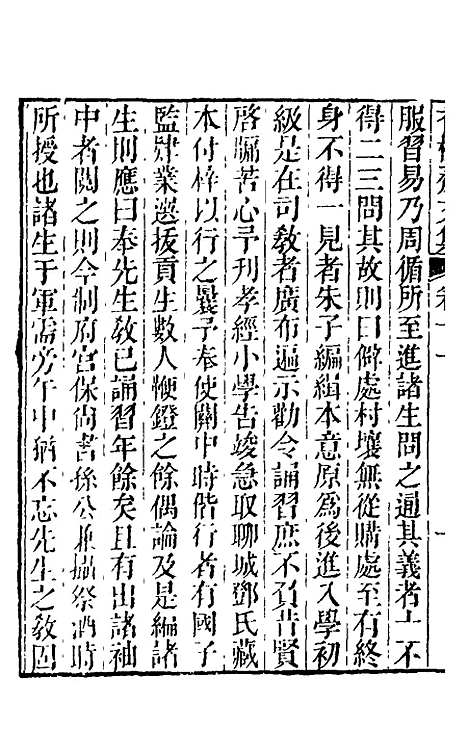 服習易乃周循所至進諸生問之通其義者十不
得二三問其故則曰僻處村壤無從購處至有終
身不得一見者朱子編緝本意原爲後進入學初
級是在司教者廣布遍示勸令誦習庶不負昔賢
啓牖苦心予刊孝經小學告竣急取聊城鄧氏藏
本付梓以行之曩予奉使關中時偕行者有國子
監肄業選拔貢生數人鞭鐙之餘偶論及是編諸
生則應曰奉先生教已誦習年餘矣且有出諸袖
中者閱之則今制府宮保尚書孫公兼攝祭酒時
所授也諸生于軍需旁午中猶不忘先生之教固